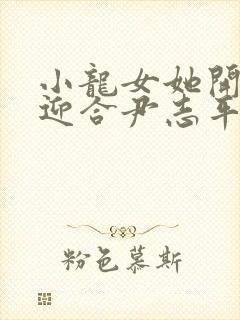 小龍女她開
迎合尹志平
粉色慕斯